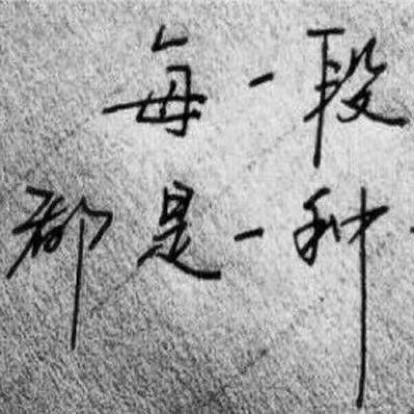 每一段
都是一种